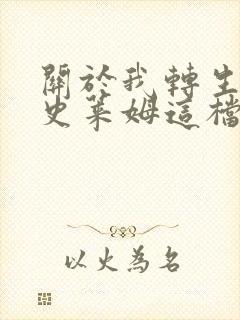 關於我轉生
史萊姆這檔
以火為名